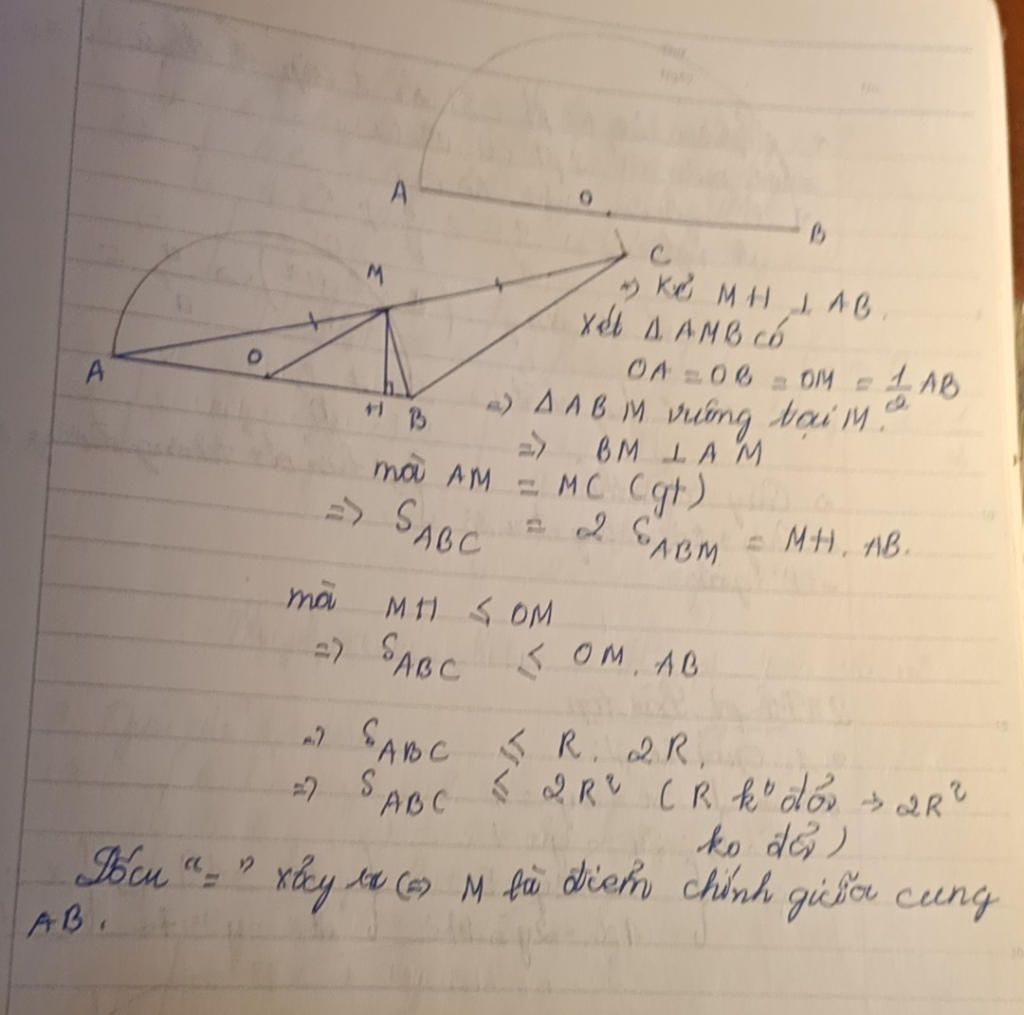 A
O
B
C
M
A
O
H
B
=> kẻ MH ⊥ AB.
xét Δ AMB có
OA = OB = OM = 1/2 AB
=> Δ ABM vuông tại M.
=> BM ⊥ AM
mà AM = MC (gt)
=> S_ABC = 2 S_ABM = MH. AB.
mà MH ≤ OM
=> S_ABC ≤ OM. AB
=> S_ABC ≤ R. 2R.
=> S_ABC ≤ 2R² ( R k° đổi → 2R²
ko đổi)
Dấu "=" xảy ra <=> M là điểm chính giữa cung
AB.